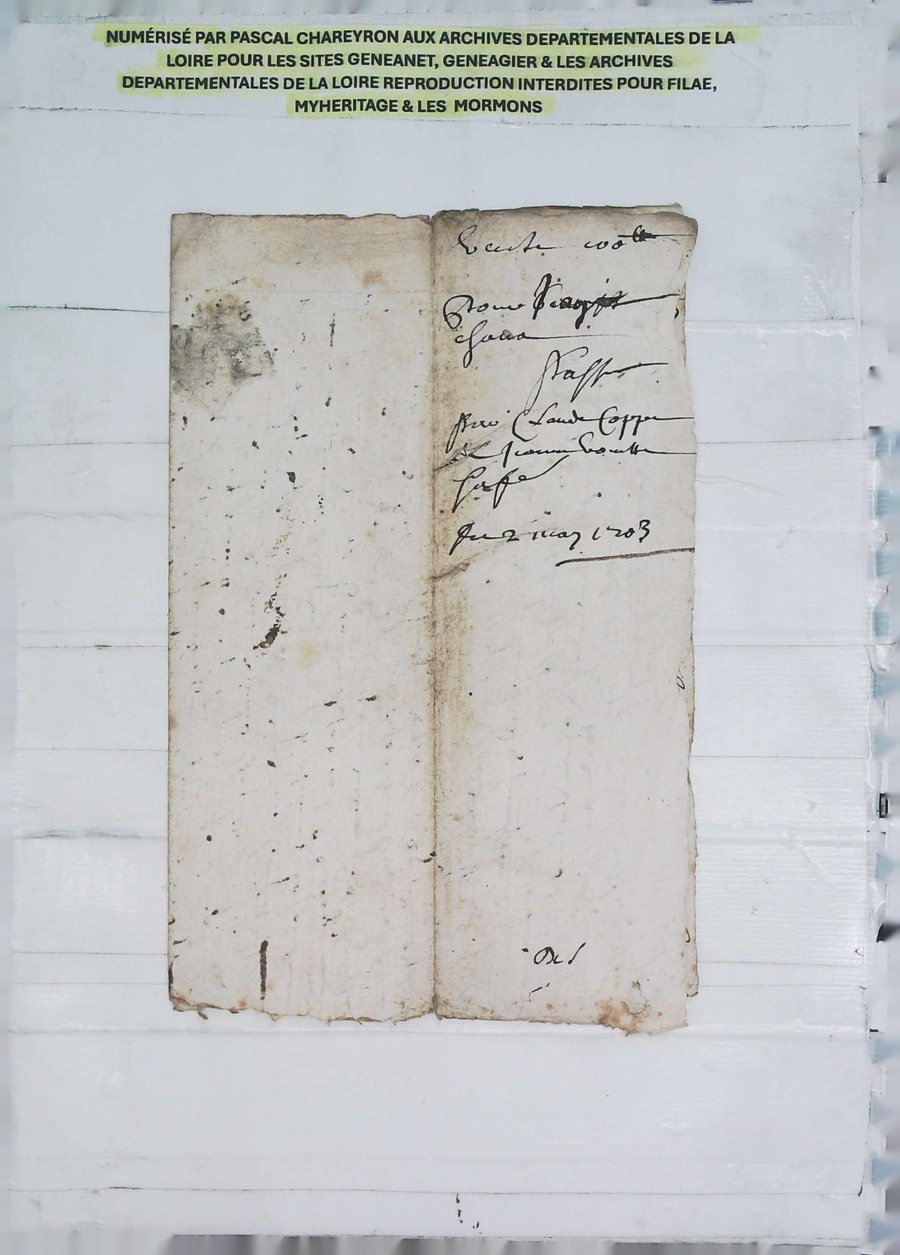 NUMÉRISÉ PAR PASCAL CHAREYRON AUX ARCHIVES DEPARTEMENTALES DE LA
LOIRE POUR LES SITES GENEANET, GENEAGIER & LES ARCHIVES
DEPARTEMENTALES DE LA LOIRE REPRODUCTION INTERDITES POUR FILAE,
MYHERITAGE & LES MORMONS
Vente 100ᵗᵗ
pour
Passee
Par Claude Coppe
& Jeanne
sa fe
Du 2 may 1703